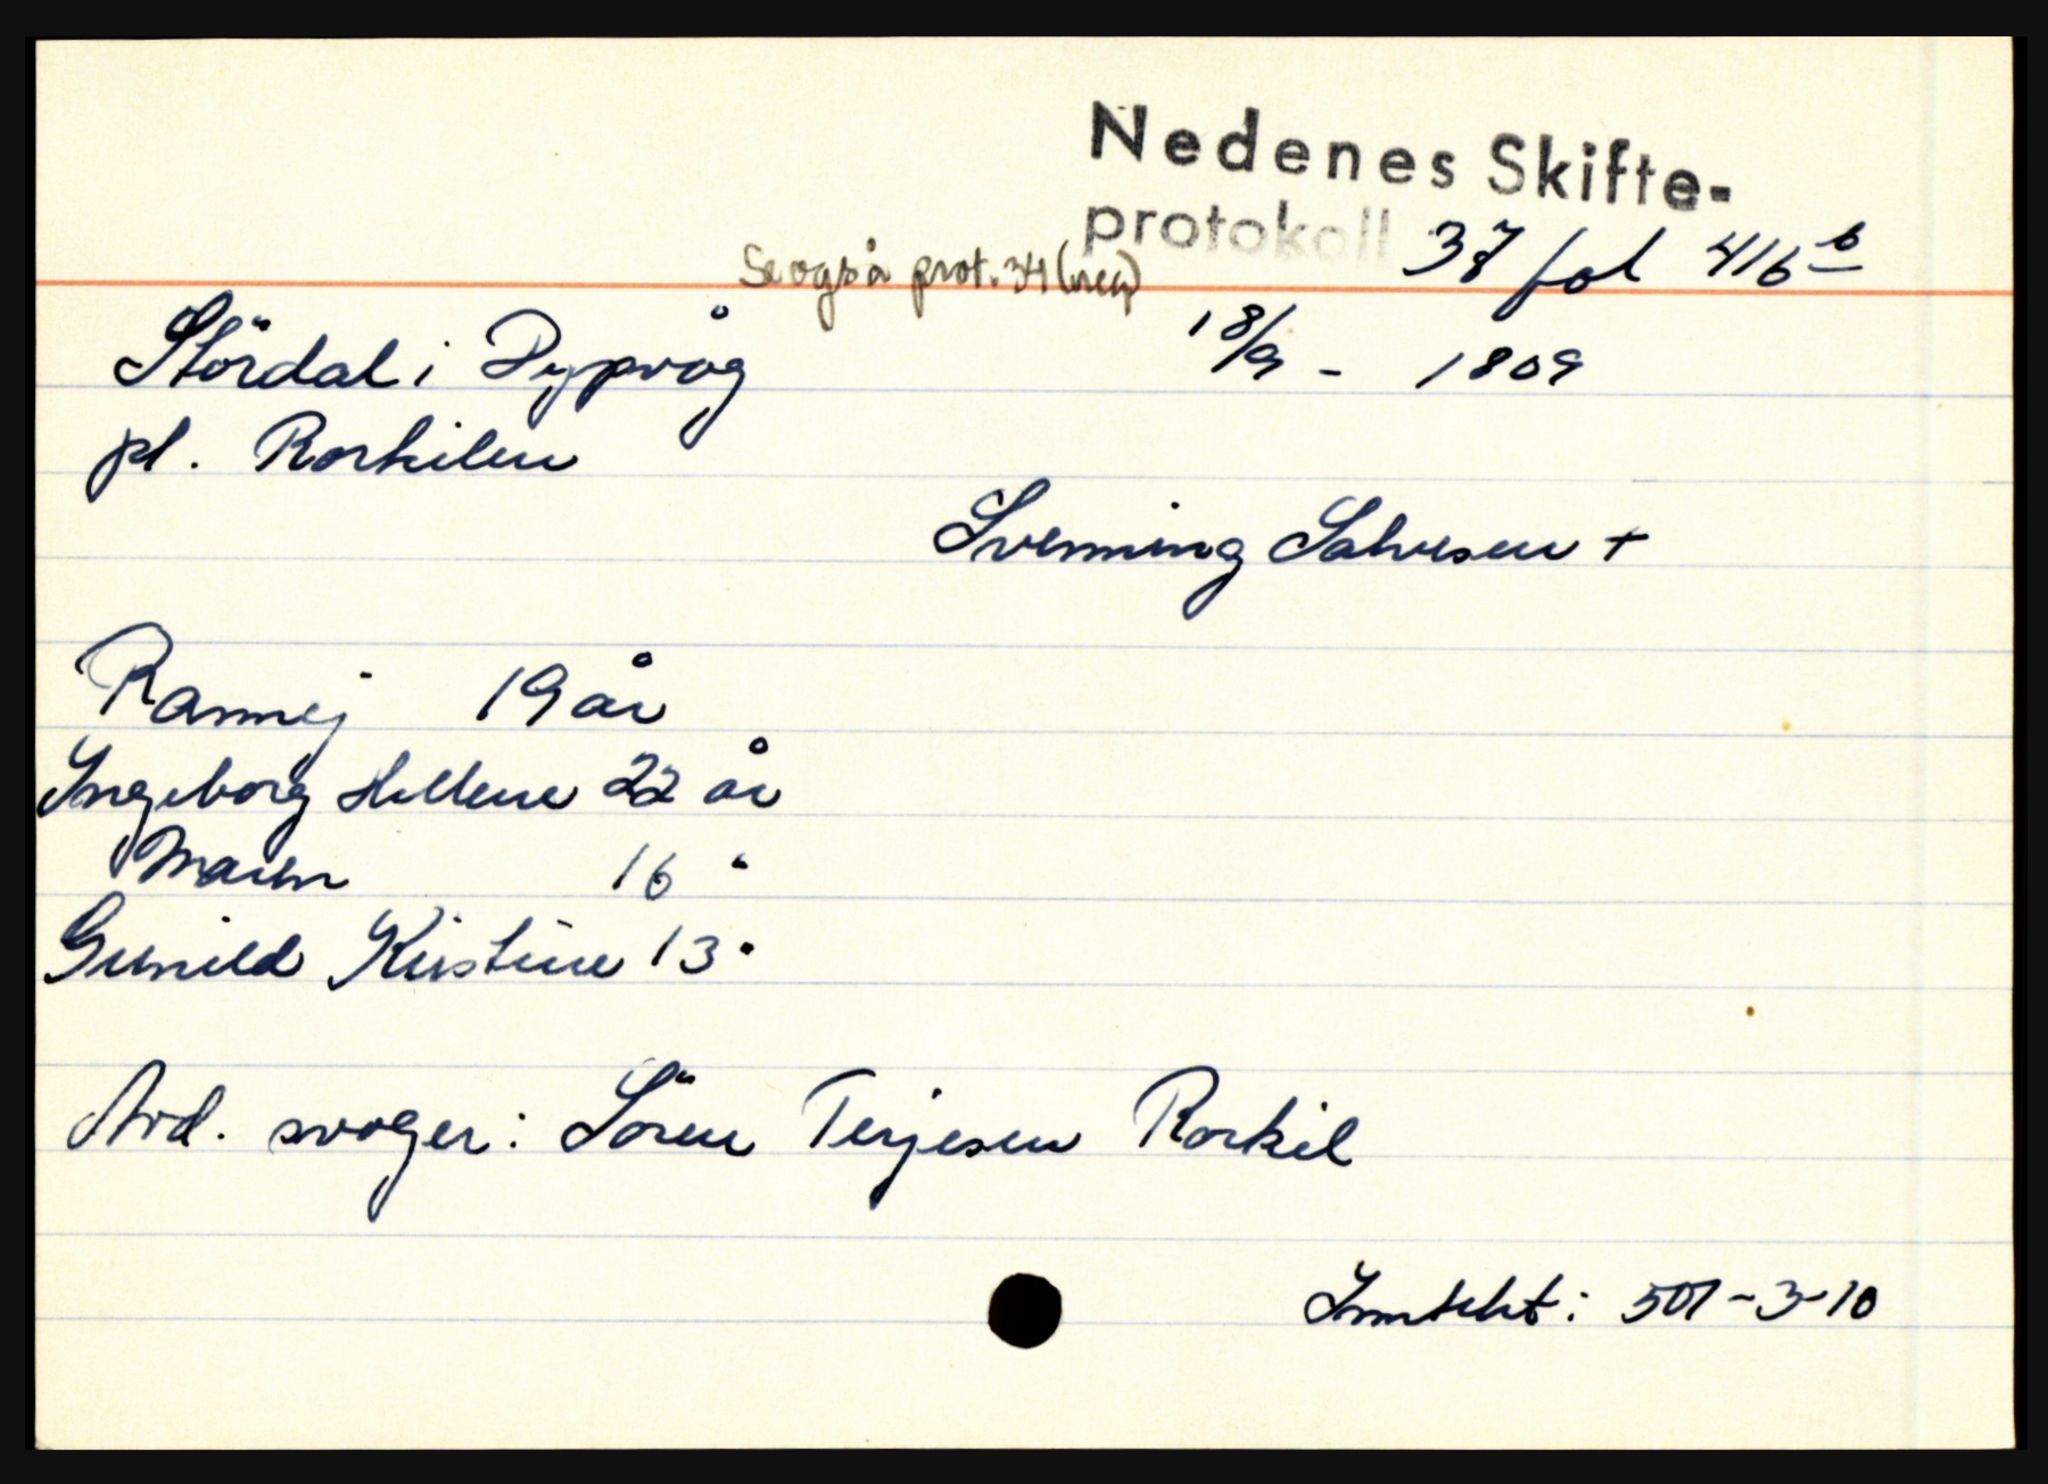 Nedenes Skifte-
protokoll 37 fol 416 b
Se også prot. 34 (reg)
Stördal i Dypvåg 18/9 - 1809
pl. Rorkilen
Svenning Salvesen +
Rannej 19 år
Ingeborg Hellene 22 år
Maren 16 "
Gunild Kirstine 13 "
Avd. svoger: Sören Terjesen Rorkil
Inntekt: 501-3-10